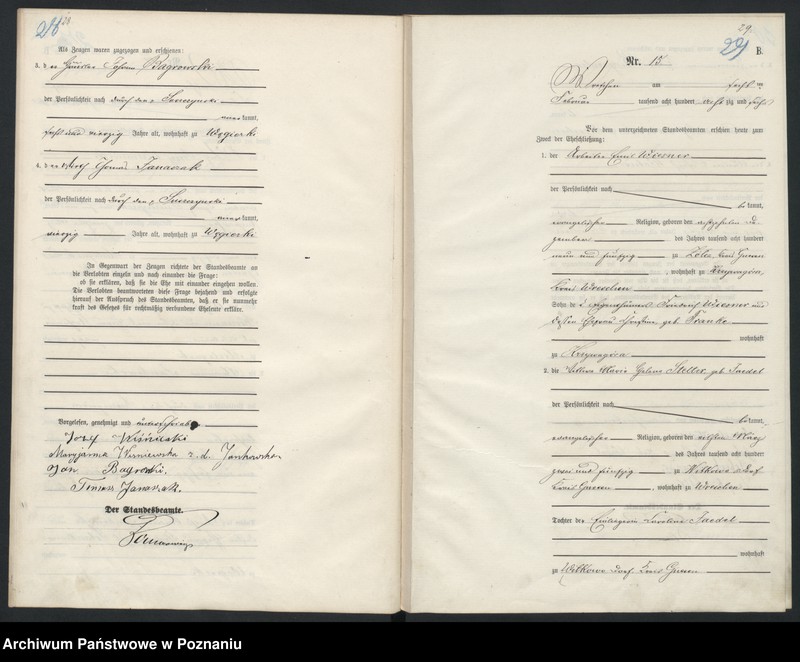 28
28
Als Zeugen waren zugezogen und erschienen:
3. der Häusler Johann Bagrowski
der Persönlichkeit nach durch den p. Sucszynski
kannt,
sechs und vierzig Jahre alt, wohnhaft zu Węgierki
4. der Thomas Janaszak
der Persönlichkeit nach durch den p.
kannt,
vierzig Jahre alt, wohnhaft zu Węgierki
In Gegenwart der Zeugen richtete der Standesbeamte an
die Verlobten einzeln und nach einander die Frage:
ob sie erklären, daß sie die Ehe mit einander eingehen wollen.
Die Verlobten beantworteten diese Frage bejahend und erfolgte
hierauf der Ausspruch des Standesbeamten, daß er sie nunmehr
kraft des Gesetzes für rechtmäßig verbundene Eheleute erkläre.
Vorgelesen, genehmigt und unterschrieben
Jozf Wiśniewski
Maryjanna Wisniewska z. d. Jankowska
Jan Bagroski.
Tomasz Janaszak.
Der Standesbeamte.
29
29
B.
Nr. 15
Wreschen am sechs ten
Februar tausend acht hundert acht zig und sechs
Vor dem unterzeichneten Standesbeamten erschien heute zum
Zweck der Eheschließung:
1. der Arbeiter Emil Wiesner
der Persönlichkeit nach
be kannt,
evangelischer Religion, geboren den achtzehnten De-
zember des Jahres tausend acht hundert
neun und fünfzig zu
Kreis Gnesen, wohnhaft zu
Kreis Wreschen
Sohn des Eigenthümers Friedrich Wiesner und
dessen Ehefrau Christine geb. Franke
wohnhaft
zu
2. die Wittwe Marie Helene Steller geb. Jaedel
der Persönlichkeit nach
be kannt,
evangelischer Religion, geboren den elften März
des Jahres tausend acht hundert
zwei und fünfzig zu Witkowo Dorf
Kreis Gnesen, wohnhaft zu Wreschen
Tochter der Einliegerin Karoline Jaedel
wohnhaft
zu Witkowo Dorf, Kreis Gnesen
Archiwum Państwowe w Poznaniu